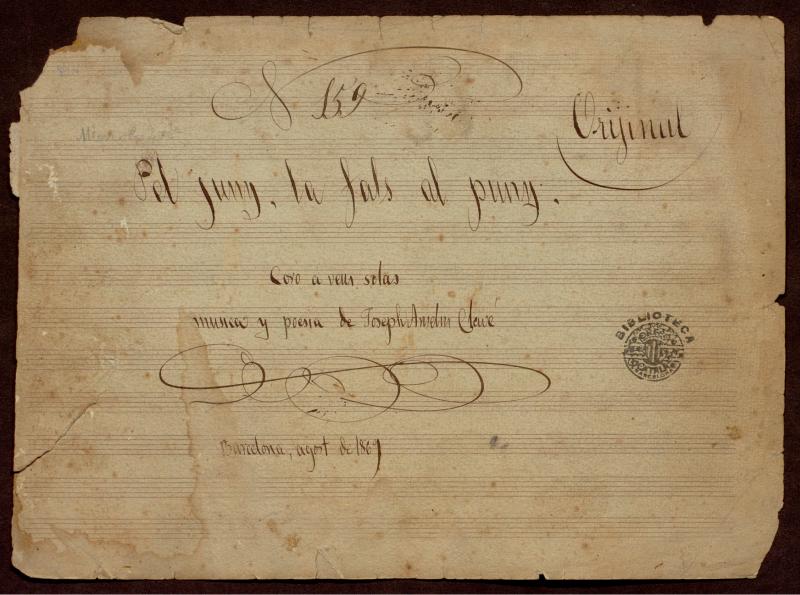 N 159
Original
Pel juny, la fals al puny.
Coro a veus solas
musica y poesia de Joseph Anselm Clavé
Barcelona, agost de 1869
BIBLIOTECA